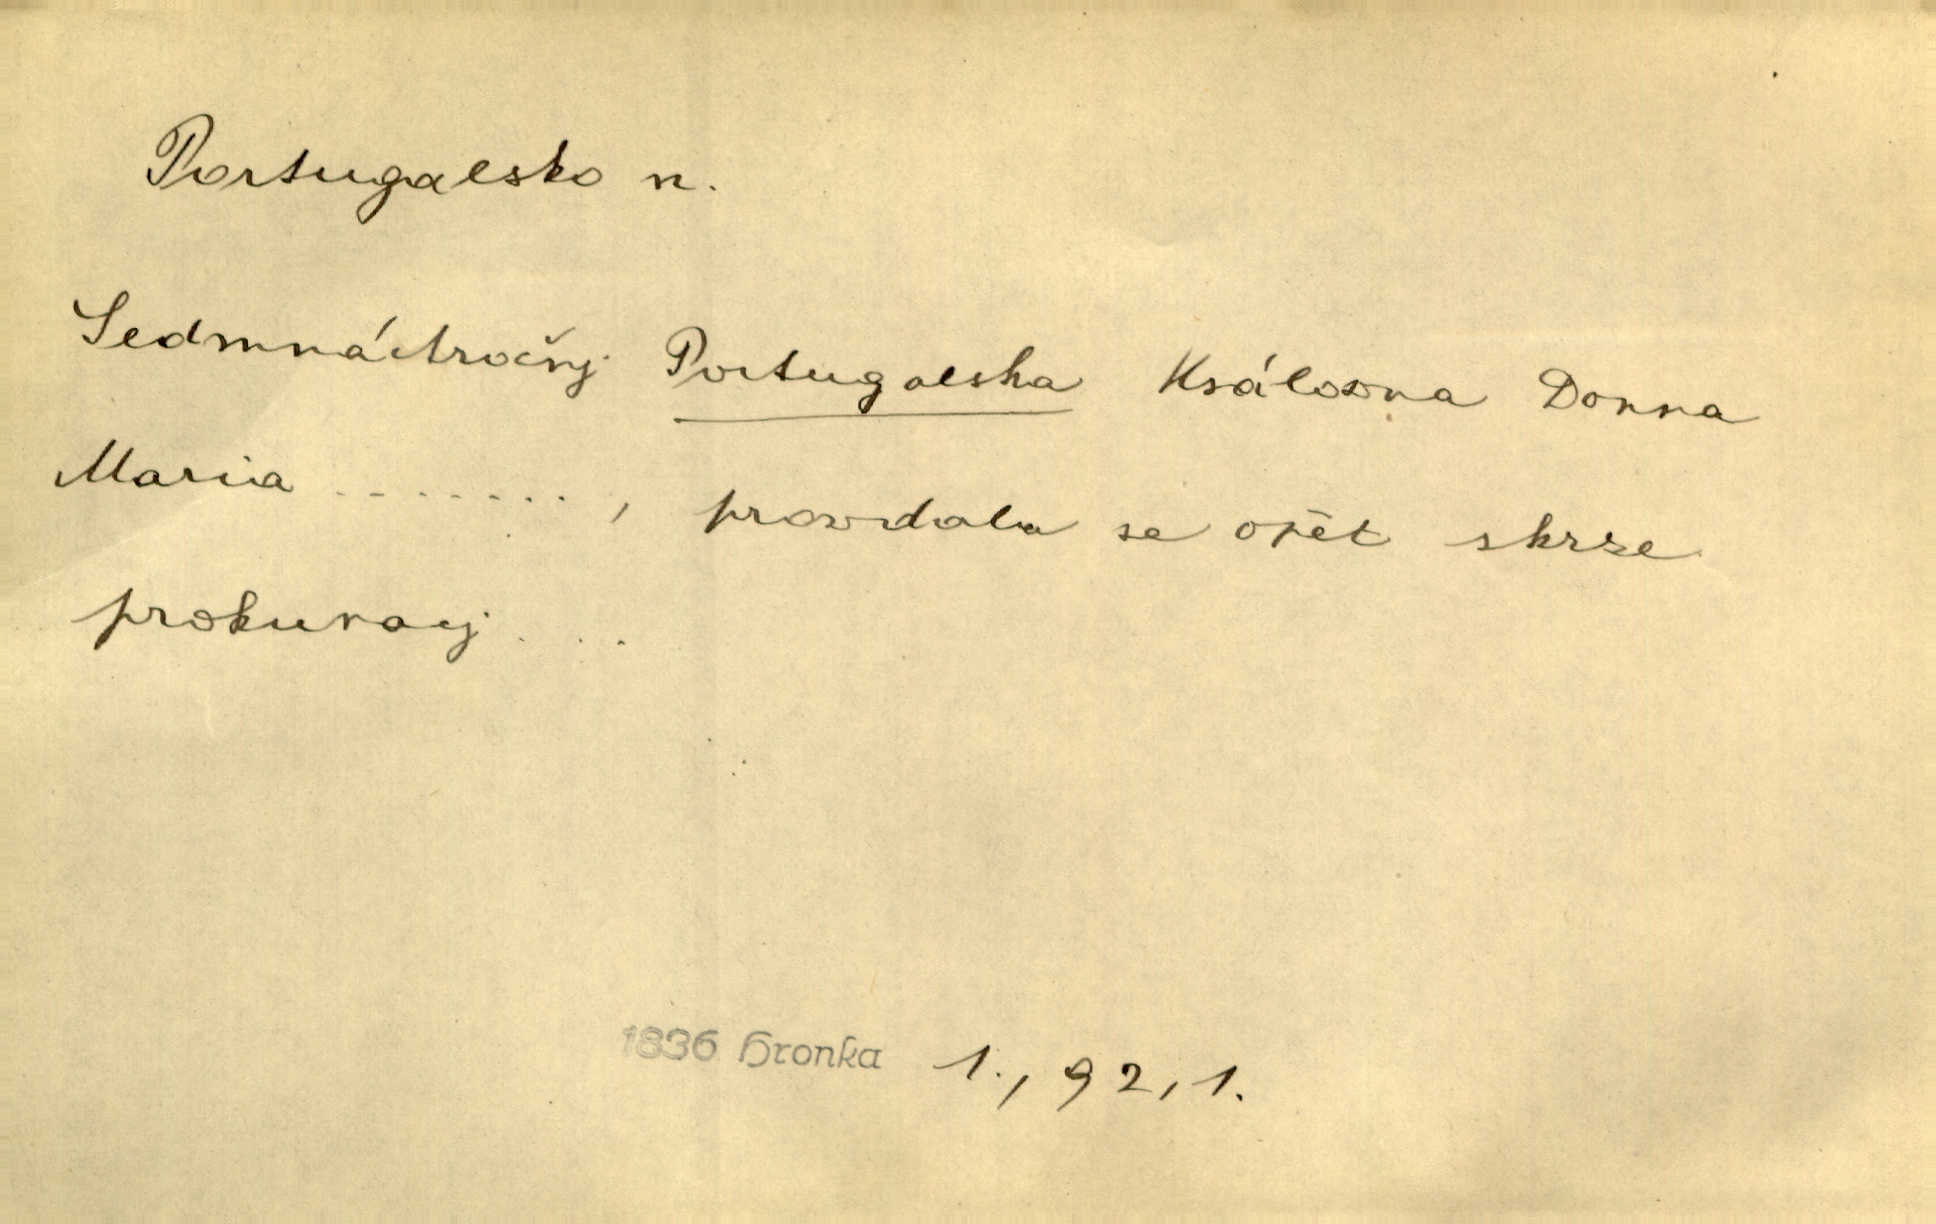 Portugalsko n.
Sedmnáctročnj Portugalska Králowna Donna
Maria ........, prowdala se opět skrze
prokuracj ...
1836 Hronka 1., 92, 1.